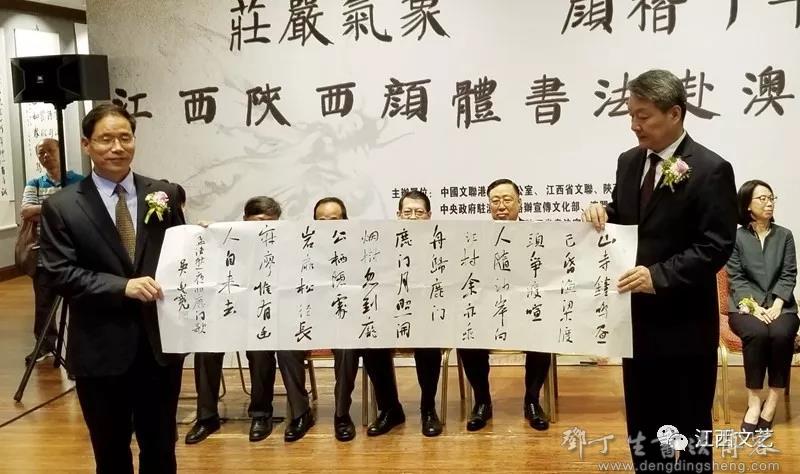 莊嚴氣象 顏楷千
江西陝西顏體書法赴澳
主辦單位：中國文聯港 公室、江西省文聯、陝
中央政府駐 辦宣傳文化部、
山寺鐘鳴晝
已昏漁梁渡
頭爭渡喧
人隨沙岸向
江村余亦乘
舟歸鹿門
鹿門月照開
烟樹忽到龐
公栖隱處
岩扉松徑長
寂寥惟有幽
人自来去
孟浩然夜歸鹿門歌
JBL
江西文艺
鄧丁生書法博客
www.dengdingsheng.com